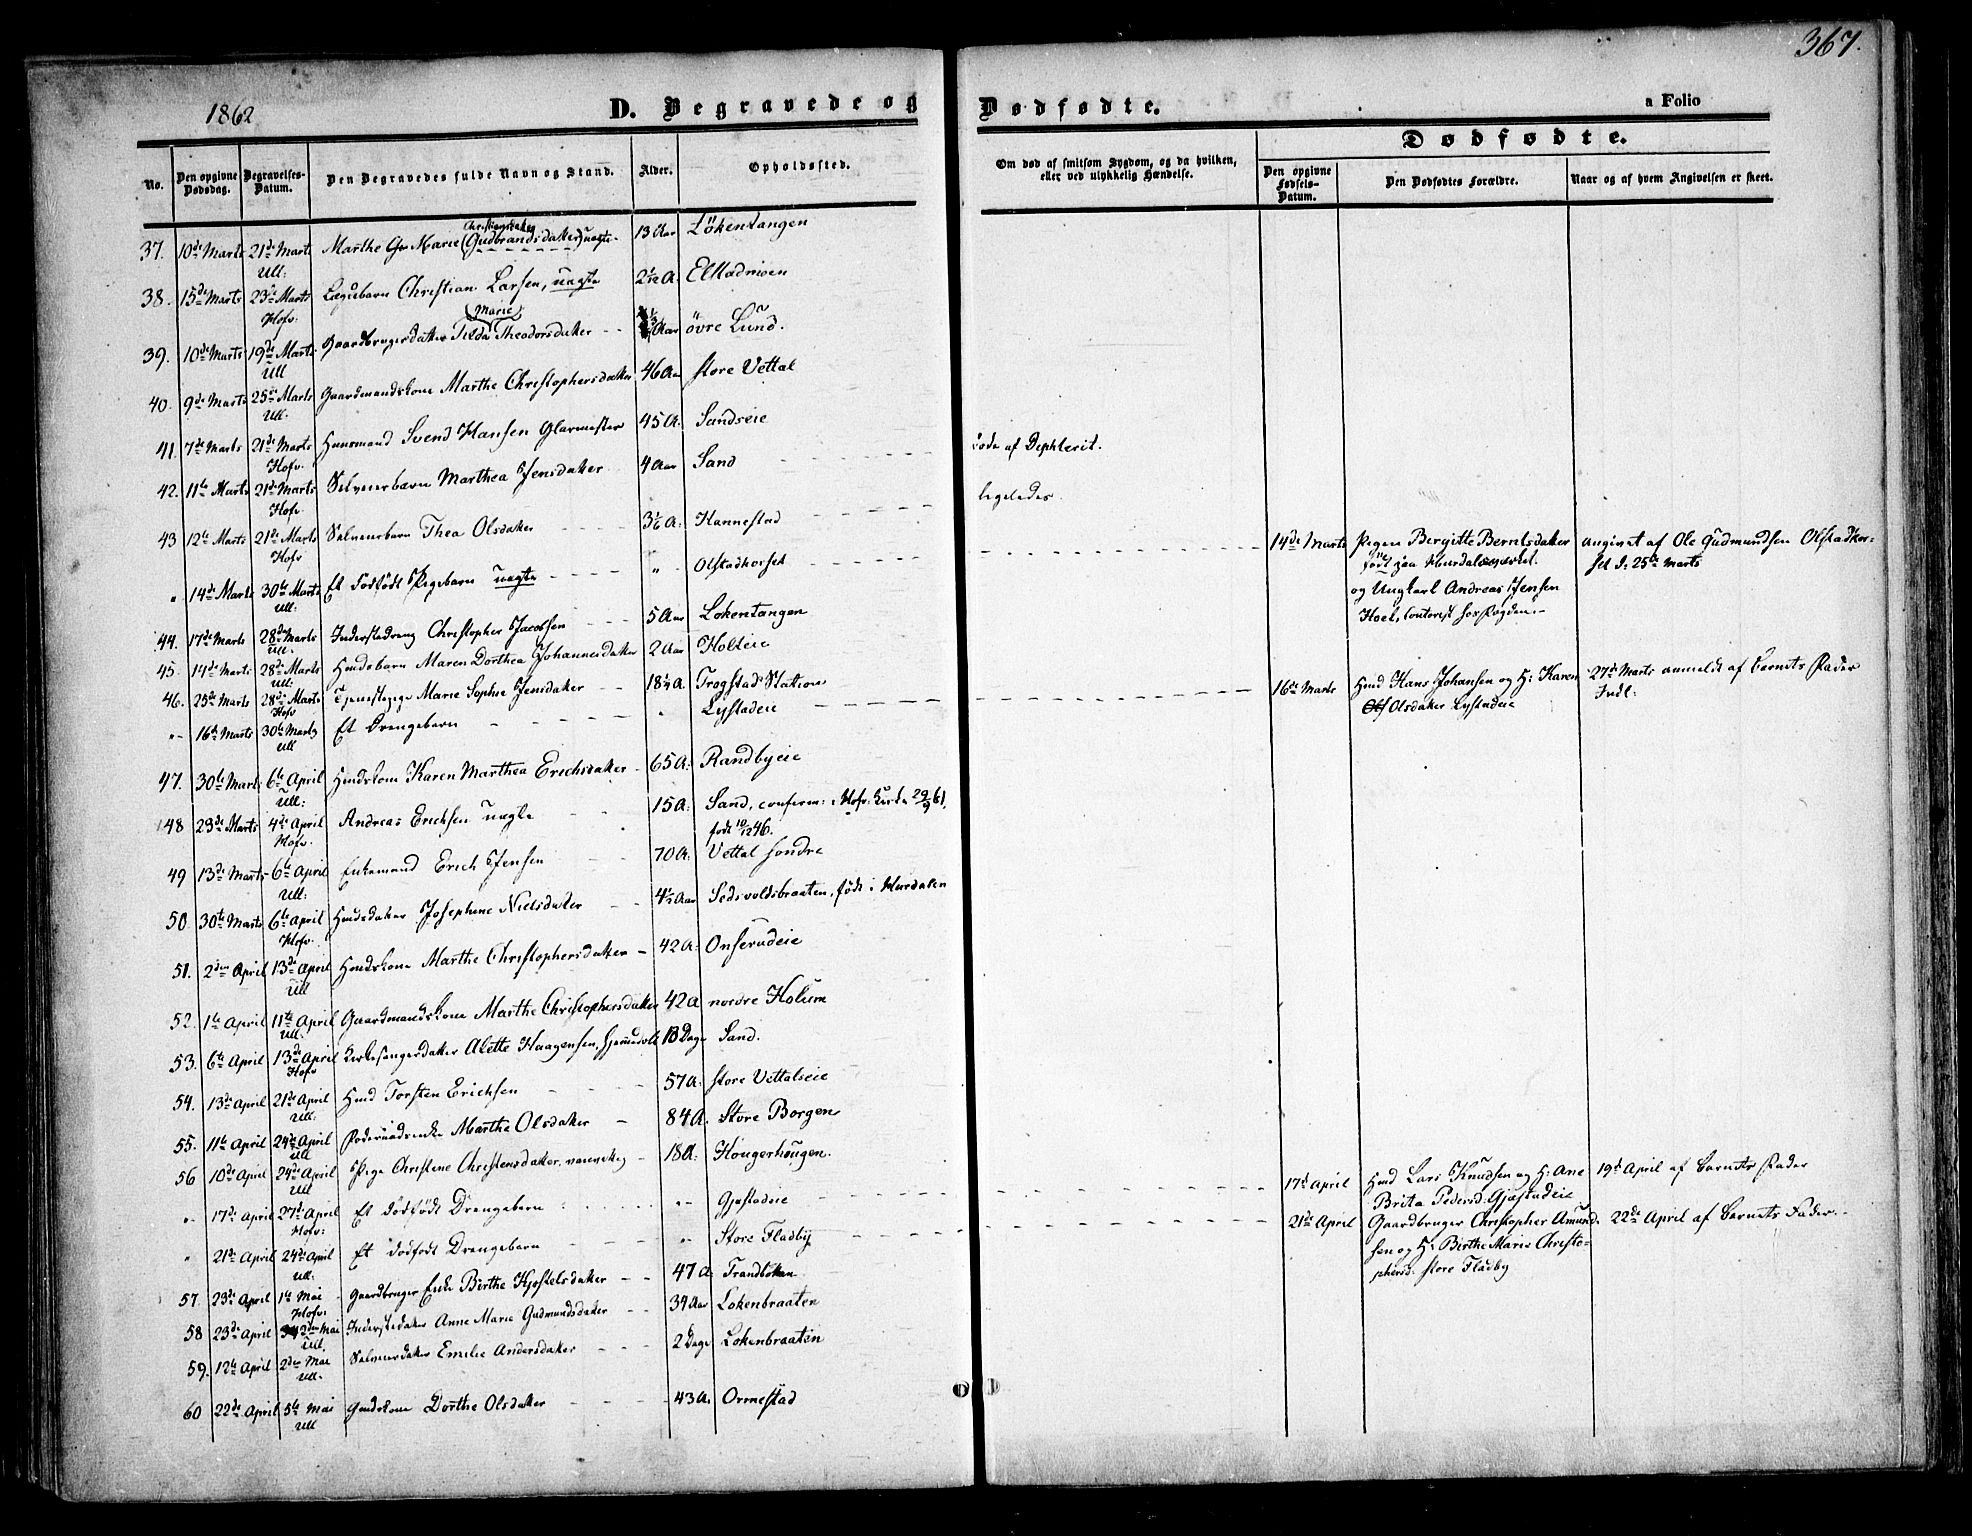 367.
1862
D. Begravede og
Dødfødte.
a Folio
No.
Den opgivne Dødsdag.
Begravelses-Datum.
Den Begravedes fulde Navn og Stand.
Alder.
Opholdssted.
Om død af smitsom Sygdom, og da hvilken, eller ved ulykkelig Hændelse.
Dødfødte.
Den opgivne Fødsels-Datum.
Den Dødfødtes Forældre.
Naar og af hvem Angivelsen er skeet.
Christiansdatter
37. 10de Marts 21de Marts Ull: Marthe Marie (Gudbrandsdatter) uægte 13 Aar Lökentangen
38. 15de Marts 23de Marts Hofv: Lægdsbarn Christian Larsen, uægte 2 1/12 A: Elstadmoen
(Marie)
39. 10de Marts 19de Marts Ull Gaardbrugerdatter Tilda Theodorsdatter Aar övre Lund.
40. 9de Marts 25de Marts Ull. Gaardmandskone Marthe Christophersdatter 46 Aar store Vettal
41. 7de Marts 21de Marts Hofv. Huusmand Svend Hansen Glarmester 45 A. Sandseie
döde af Diphterit.
42. 11te Marts 21de Marts Hofv Selveierbarn Marthea Jensdatter 4 Aar Sand
ligeledes
43 12te Marts 21de Marts Hofv Selveierbarn Thea Olsdatter 3 1/6 A: Hannestad
" 14de Marts 30te Marts Ull: Et dödfödt Pigebarn uægte " Olstadkorset
14de Marts Pigen Birgitte Berntsdatter angivet af Ole Gudmundsen Olstadkor-
født paa Hurdalsværket. set d: 25de Marts
og Ungkarl Andreas Jensen
Hoel, Contorist hos Fogden.-
44. 17de Marts 28de Marts Ull. Inderstedreng Christopher Jacobsen 5 Aar Lokentangen
45. 14de Marts 28de Marts Ull: Hmdsbarn Maren Dorthea Johannesdatter 2 Aar Holteie
46. 25de Marts 28de Marts Hofv Tjenestepige Marie Sophie Jensdatter 18 1/4 A. Trogstad Station
" 16de Marts 30te Marts Ull Et Drengebarn " Lystadeie
16de Marts Hmd Hans Johansen og H: Karen 27de Marts anmeldt af Barnets Fader
Olsdatter Lystadeie
47. 30te Marts 6te April Ull: Hmdskone Karen Marthea Erichsdatter 65 A: Randbyeie
48 23de Marts 4de April Hofv. Andreas Erichsen uægte 15 A: Sand, confirm: i Hofv: Kirke 29/9 61,
född 10/12 46.
49 13de Marts 6te April Ull: Enkemand Erich Jensen 70 A: Vettal söndre
50 30te Marts 6te April Hofv. Hmdsdatter Josephine Nielsdatter 4 1/2 Aar Sedsvoldsbraaten, födt i Hurdalen
51. 2den April 13de April Ull Hmdskone Marthe Christophersdatter 42 A: Onserudeie
52. 1te April 11te April Ull. Gaardmandskone Marthe Christophersdatter 42 A nordre Holum
53. 6te April 13de April Hofv Kirkesangerdatter Alette Haagensen, hjemmedöbt 13 Dage Sand.
54. 13de April 21de April Ull: Hmd Torsten Erichsen 57 A: store Vettalseie
55. 11te April 24de April Ull Foderaadsenke Marthe Olsdatter 84 A. Store Borgen
56 10de April 24de April Ull Pige Christine Christensdatter, vanvittig 18 A: Hougerhougen.
" 17de April 27de April Hofv: Et dödfödt Drengebarn " Gjestadeie
17de April Hmd Lars Knudsen og H: Ane 19de April af Barnets Fader
Brita Pedersd: Gjestadeie
" 21de April 24de April Ull: Et dödfödt Drengebarn " Store Fladby
21de April Gaardbruger Christopher Amund- 22de April af Barnets Fader.
sen og H: Birthe Marie Christo-
phersd: store Fladby
57. 23de April 1te Mai Hofv: Gaardbruger Enke Birthe Kjostelsdatter 47 A: Trandbakken
58 23de April 2den Mai Ull. Inderstedatter Anne Marie Gudmundsdatter 34 Aar Lokenbraaten
59. 12te April 2den Mai Ull. Selveierdatter Emilie Andersdatter 2 Dage Lokenbraaten
60 22de April 5te Mai Ull Hmdskone Dorthe Olsdatter 43 A. Ormestad